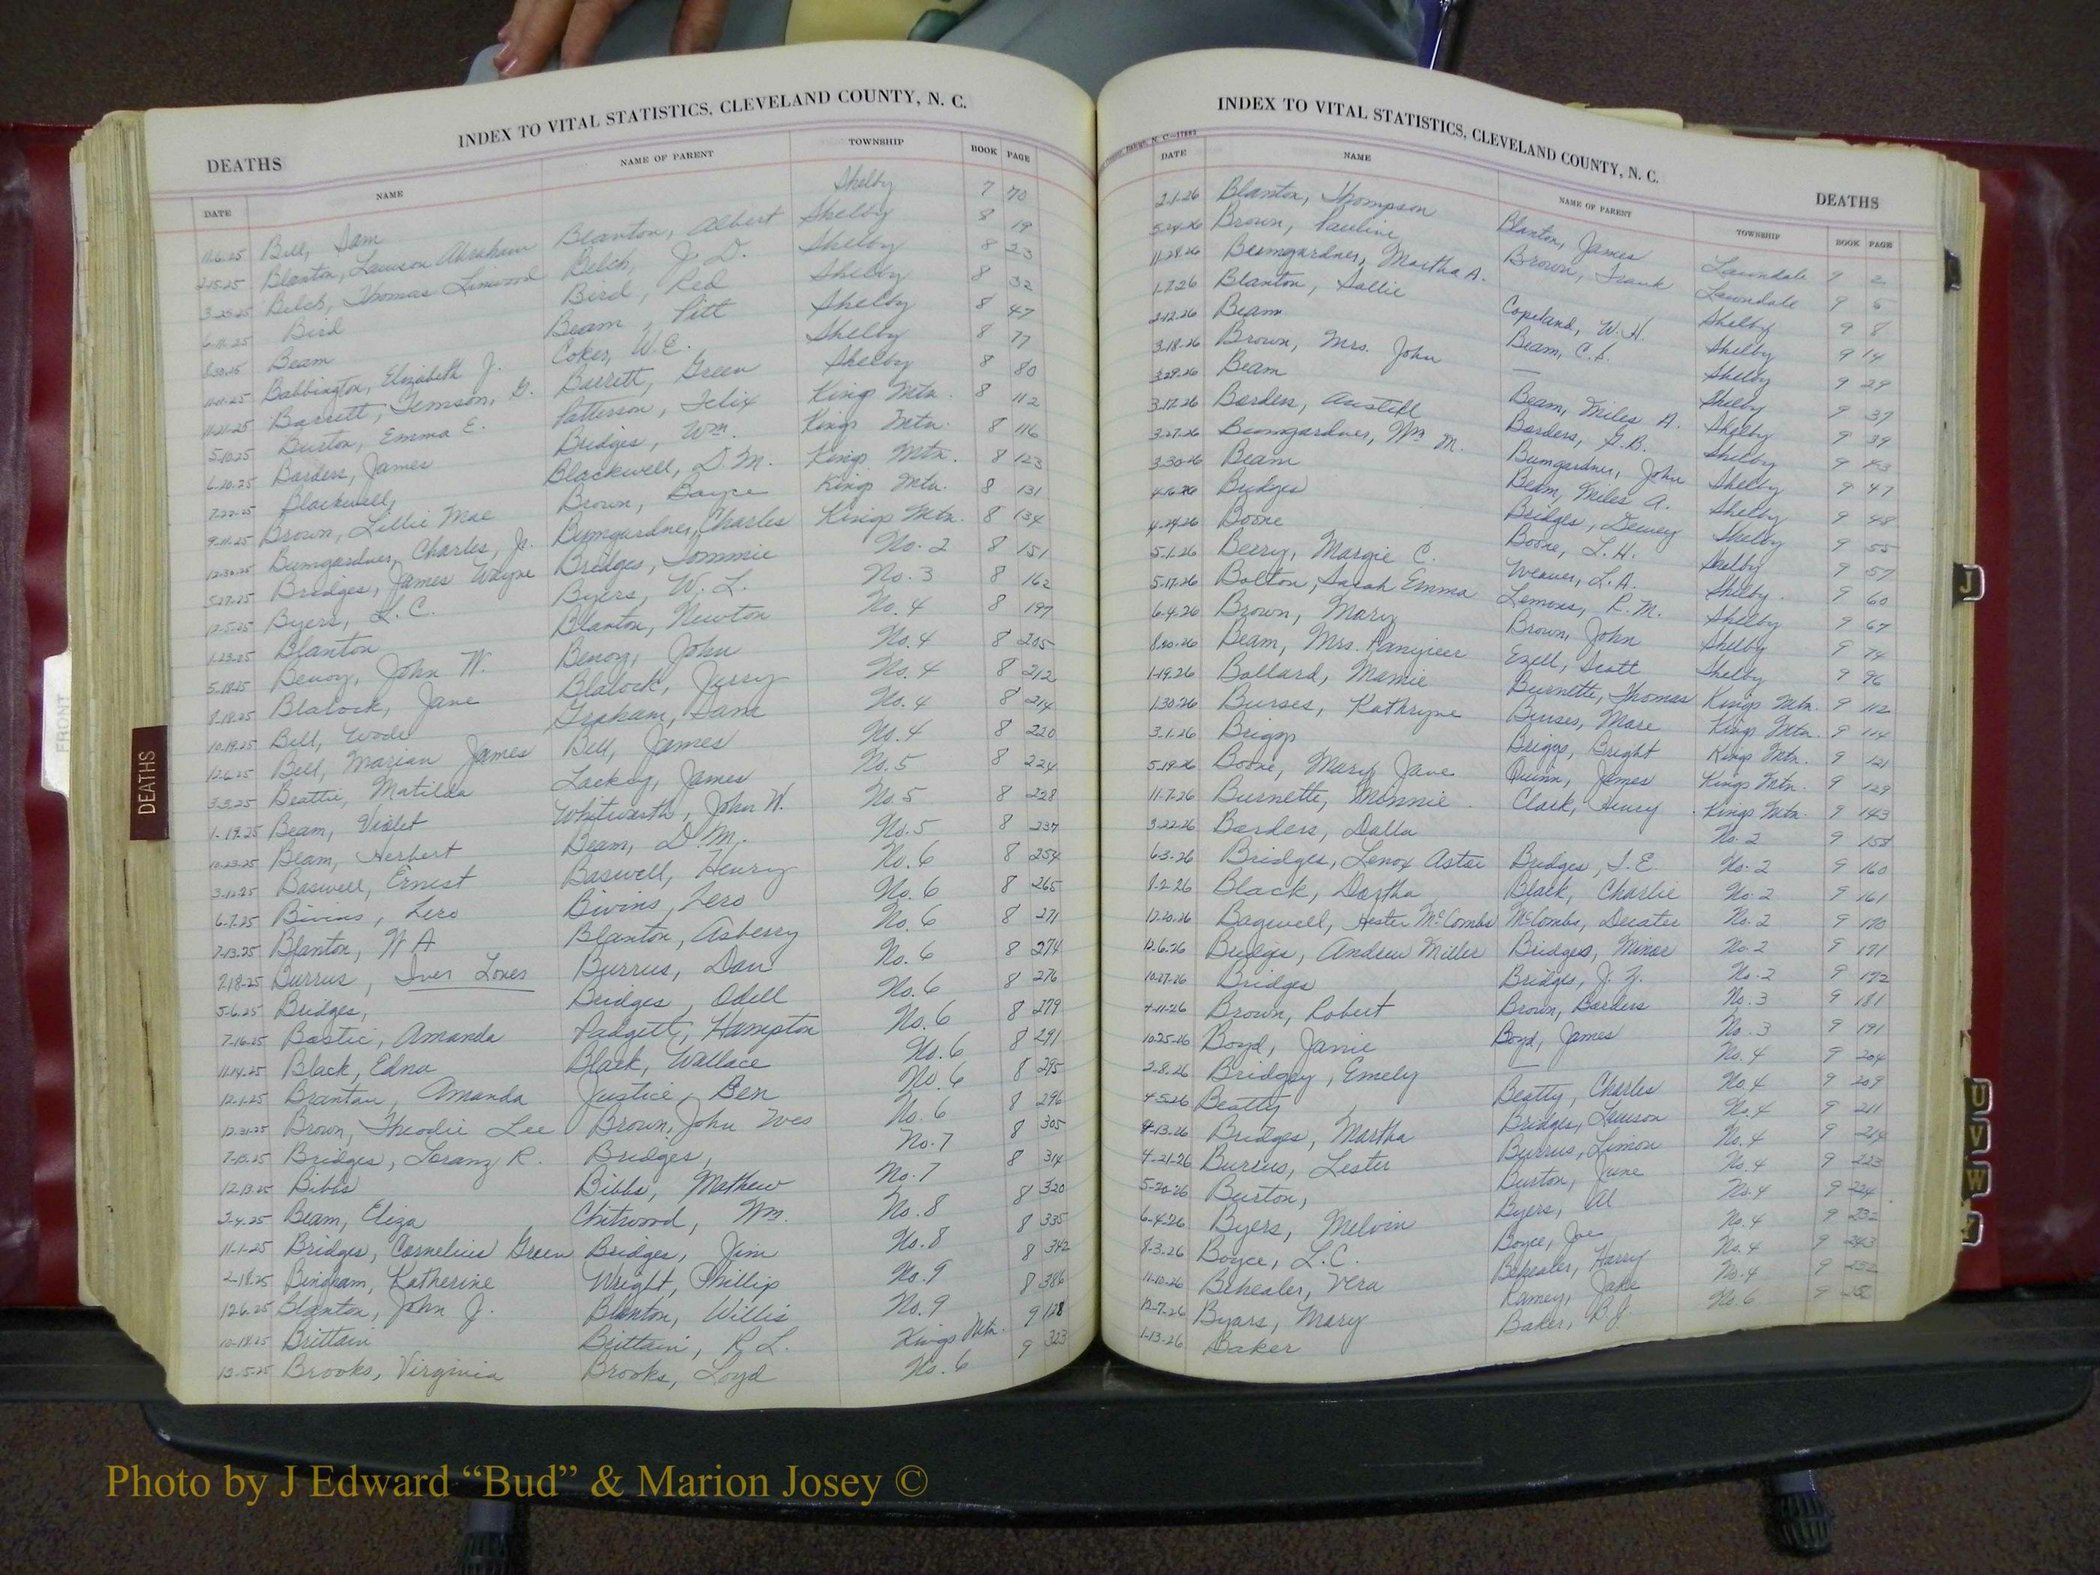 INDEX TO VITAL STATISTICS, CLEVELAND COUNTY, N. C.
DEATHS
DATE NAME NAME OF PARENT TOWNSHIP BOOK PAGE
11.6.25 Bell, Sam Shelby 7 70
2-15-25 Blanton, Lawson Abraham Blanton, Albert Shelby 8 19
3-25-25 Belch, Thomas Linwood Belch, J. D. Shelby 8 23
6-11-25 Bird Bird, Red Shelby 8 32
8-30-25 Beam Beam, Pitt Shelby 8 47
11-11-25 Babbington, Elizabeth J. Coker, W.C. Shelby 8 77
11-21-25 Barrett, Temson, G. Barrett, Green Shelby 8 80
5-10-25 Burton, Emma E. Patterson, Felix Kings Mtn. 8 112
6-20-25 Borders, James Bridges, Wm. Kings Mtn. 8 116
7-22-25 Blackwell, Blackwell, D.M. Kings Mtn. 8 123
9-11-25 Brown, Lillie Mae Brown, Boyce Kings Mtn. 8 131
12-30-25 Bumgardner, Charles, Jr. Bumgardner, Charles Kings Mtn. 8 134
5-27-25 Bridges, James Wayne Bridges, Tommie No. 2 8 151
12-5-25 Byers, L.C. Byers, W. L. No. 3 8 162
1-23-25 Blanton Blanton, Newton No. 4 8 197
5-18-25 Benoy, John W. Benoy, John No. 4 8 205
8-18-25 Blalock, Jane Blalock, Jerry No. 4 8 212
10-19-25 Bell, Wade Graham, No. 4 8 214
12-6-25 Bell, Marian James Bell, James No. 4 8 220
3-3-25 Beattie, Matilda Lackey, James No. 5 8 224
1-19-25 Beam, Violet Whitworth, John W. No. 5 8 228
10-23-25 Beam, Herbert Beam, D.M. No. 5 8 237
3-12-25 Baswell, Ernest Baswell, Henry No. 6 8 254
6-7-25 Bivins, Zero Bivins, Zero No. 6 8 265
7-13-25 Blanton, W A Blanton, Asberry No. 6 8 271
7-18-25 Burrus, Iver Lones Burrus, Dan No. 6 8 274
5-6-25 Bridges, Bridges, Odell No. 6 8 276
7-16-25 Bostic, Amanda Padgett, Hampton No. 6 8 279
11-14-25 Black, Edna Black, Wallace No. 6 8 291
12-1-25 Amanda Justice, Ben No. 6 8 295
12-31-25 Brown, Theodie Lee Brown, John Wes No. 6 8 296
7-13-25 Bridges, Loranz R. Bridges, No. 7 8 305
12-13-25 Bibbs Bibbs, Mathew No. 7 8 314
2-4-25 Beam, Eliza Chitwood, Wm. No. 8 8 320
11-1-25 Bridges, Cornelius Green Bridges, Jim No. 8 8 335
2-18-25 Bingham, Katherine Wright, Phillip No. 9 8 342
12-6-25 Blanton, John J. Blanton, Willis No. 9 8 386
10-18-25 Brittain Brittain, R L. Kings Mtn. 9 128
12-5-25 Brooks, Virginia Brooks, Loyd No. 6 9 323
INDEX TO VITAL STATISTICS, CLEVELAND COUNTY, N. C.
DEATHS
DATE NAME NAME OF PARENT TOWNSHIP BOOK PAGE
2-1-26 Blanton, Thompson Blanton, James Lawndale 9 2
5-24-26 Brown, Pauline Brown, Frank Lawndale 9 5
11-28-26 Bumgardner, Martha A. Shelby 9 8
1-7-26 Blanton, Sallie Copeland, W. H. Shelby 9 14
2-12-26 Beam Beam, C.S. Shelby 9 29
3-18-26 Brown, Mrs. John — Shelby 9 37
3-29-26 Beam Beam, Miles A. Shelby 9 39
3-17-26 Borders, Austill Borders, G.B. Shelby 9 43
3-27-26 Bumgardner, Wm M. Bumgardner, John Shelby 9 47
3-30-26 Beam Beam, Miles A. Shelby 9 48
4-16-26 Bridges Bridges, Dewey Shelby 9 55
4-24-26 Boone Boone, L.H. Shelby 9 57
5-1-26 Berry, Margie C. Weaver, L.A. Shelby. 9 60
5-17-26 Bolton, Sarah Emma Lemons, R. M. Shelby 9 67
6-4-26 Brown, Mary Brown, John Shelby 9 74
8-20-26 Beam, Mrs. Ezell, Scott Shelby 9 96
1-19-26 Ballard, Mamie Burnette, Thomas Kings Mtn. 9 112
1-30-26 Burses, Kathryne Burses, Mare Kings Mtn. 9 114
3-1-26 Briggs Briggs, Bright Kings Mtn. 9 121
5-19-26 Boone, Mary Jane Quinn, James Kings Mtn. 9 129
11-7-26 Burnette, Minnie Clark, Henry Kings Mtn. 9 143
3-22-26 Borders, Dalla No. 2 9 158
6-3-26 Bridges, Lenox Astor Bridges, I.E. No. 2 9 160
8-2-26 Black, Dortha Black, Charlie No. 2 9 161
12-20-26 Bagwell, Hester McCombs McCombs, Decater No. 2 9 170
12-6-26 Bridges, Andrew Miller Bridges, Minor No. 2 9 171
10-27-26 Bridges Bridges, J. Y. No. 2 9 172
4-11-26 Brown, Robert Brown, Borders No. 3 9 181
10-25-26 Boyd, Janie Boyd, James No. 3 9 191
2-8-26 Bridgey, Emely — No. 4 9 204
4-5-26 Beatty Beatty, Charles No. 4 9 209
4-13-26 Bridges, Martha Bridges, Lawson No. 4 9 211
4-21-26 Burrus, Lester Burrus, Limon No. 4 9 214
5-20-26 Burton, Burton, June No. 4 9 223
6-4-26 Byers, Melvin Byers, Al No. 4 9 224
8-3-26 Boyce, L.C. Boyce, Joe No. 4 9 232
11-10-26 Beheler, Vera Beheler, Harry No. 4 9 243
12-7-26 Byars, Mary Ramey, Jake No. 4 9
1-13-26 Baker Baker, B.J. No. 6 9
FRONT
DEATHS
J
U
V
W
Photo by J Edward “Bud” & Marion Josey ©